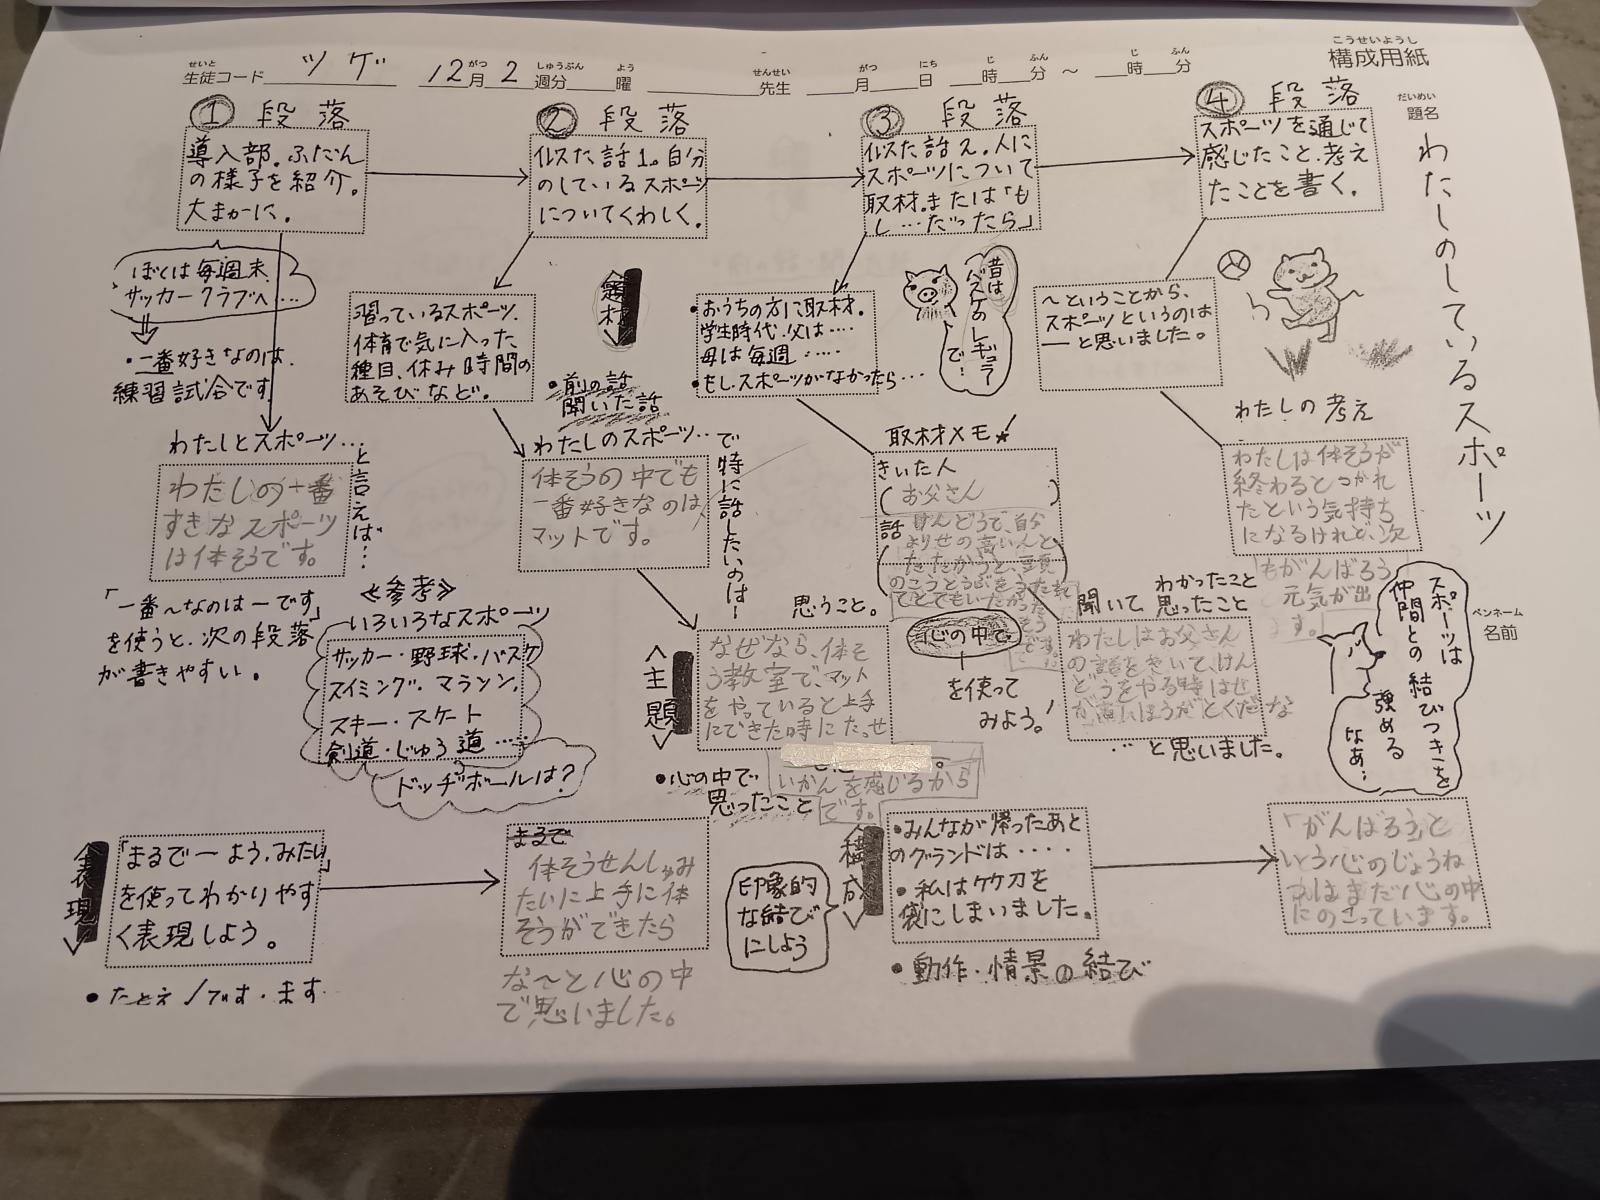 構成用紙
こうせいようし
生徒コード ツゲ 12月2週分 曜 先生 月 日 時 分 ~ 時 分
せいと がつ しゅうぶん よう せんせい がつ にち じ ふん じ ふん
題名
だいめい
わたしのしているスポーツ
ペンネーム
名前
① 段落
導入部。ふだん
の様子を紹介。
大まかに。
ぼくは毎週末
サッカークラブへ…
・一番好きなのは、
練習試合です。
わたしとスポーツ…
と言えば…
わたしの一番
すきなスポーツ
は体そうです。
「一番~なのは―です」
を使うと、次の段落
が書きやすい。
≪参考≫
いろいろなスポーツ
サッカー・野球・バスケ
スイミング・マラソン、
スキー・スケート
剣道・じゅう道…
ドッヂボールは?
② 段落
似た話1。自分
のしているスポーツ
についてくわしく。
習っているスポーツ、
体育で気に入った
種目、休み時間の
あそびなど。
題材
・前の話
聞いた話
わたしのスポーツ…
で特に話したいのは―
体そうの中でも
一番好きなのは、
マットです。
主題
思うこと。
なぜなら、体そ
う教室で、マット
をやっていると上手
にできた時にたっせ
いかんを感じるから
です。
・心の中で
思ったこと
③ 段落
似た話2。人に
スポーツについて
取材。または「も
し…だったら」
・おうちの方に取材。
学生時代、父は…
母は毎週……
・もし、スポーツがなかったら…
昔は
バスケのレギュラー
で…
取材メモ★
きいた人
(お父さん)
話
けんどうで、自分
よりせの高い人と
たたかうと、頭
のこうとうぶをうたれ
てとてもいたかった
そうです。
心の中で
を使って
みよう。
聞いて わかったこと
思ったこと
わたしはお父さん
の話をきいて、けん
どうをやる時はせ
が高いほうがとくだな
…と思いました。
④ 段落
スポーツを通じて
感じたこと、考え
たことを書く。
~ということから、
スポーツというのは
―と思いました。
わたしの考え
わたしは体そうが
終わるとつかれ
たという気持ち
になるけれど、次
もがんばろう
元気が出
ます。
スポーツは
仲間との結びつきを
強める
なあ…
表現
「まるで―よう、みたい」
を使ってわかりやす
く表現しよう。
・たとえ/です・ます
まるで
体そうせんしゅみ
たいに上手に体
そうができたら
な~と心の中
で思いました。
印象的
な結び
にしよう
構成
・みんなが帰ったあと
のグランドは・・・・
・私は竹刀を
袋にしまいました。
・動作・情景の結び
「がんばろう」と
いう心のじょうね
つはまだ心の中
にのこっています。